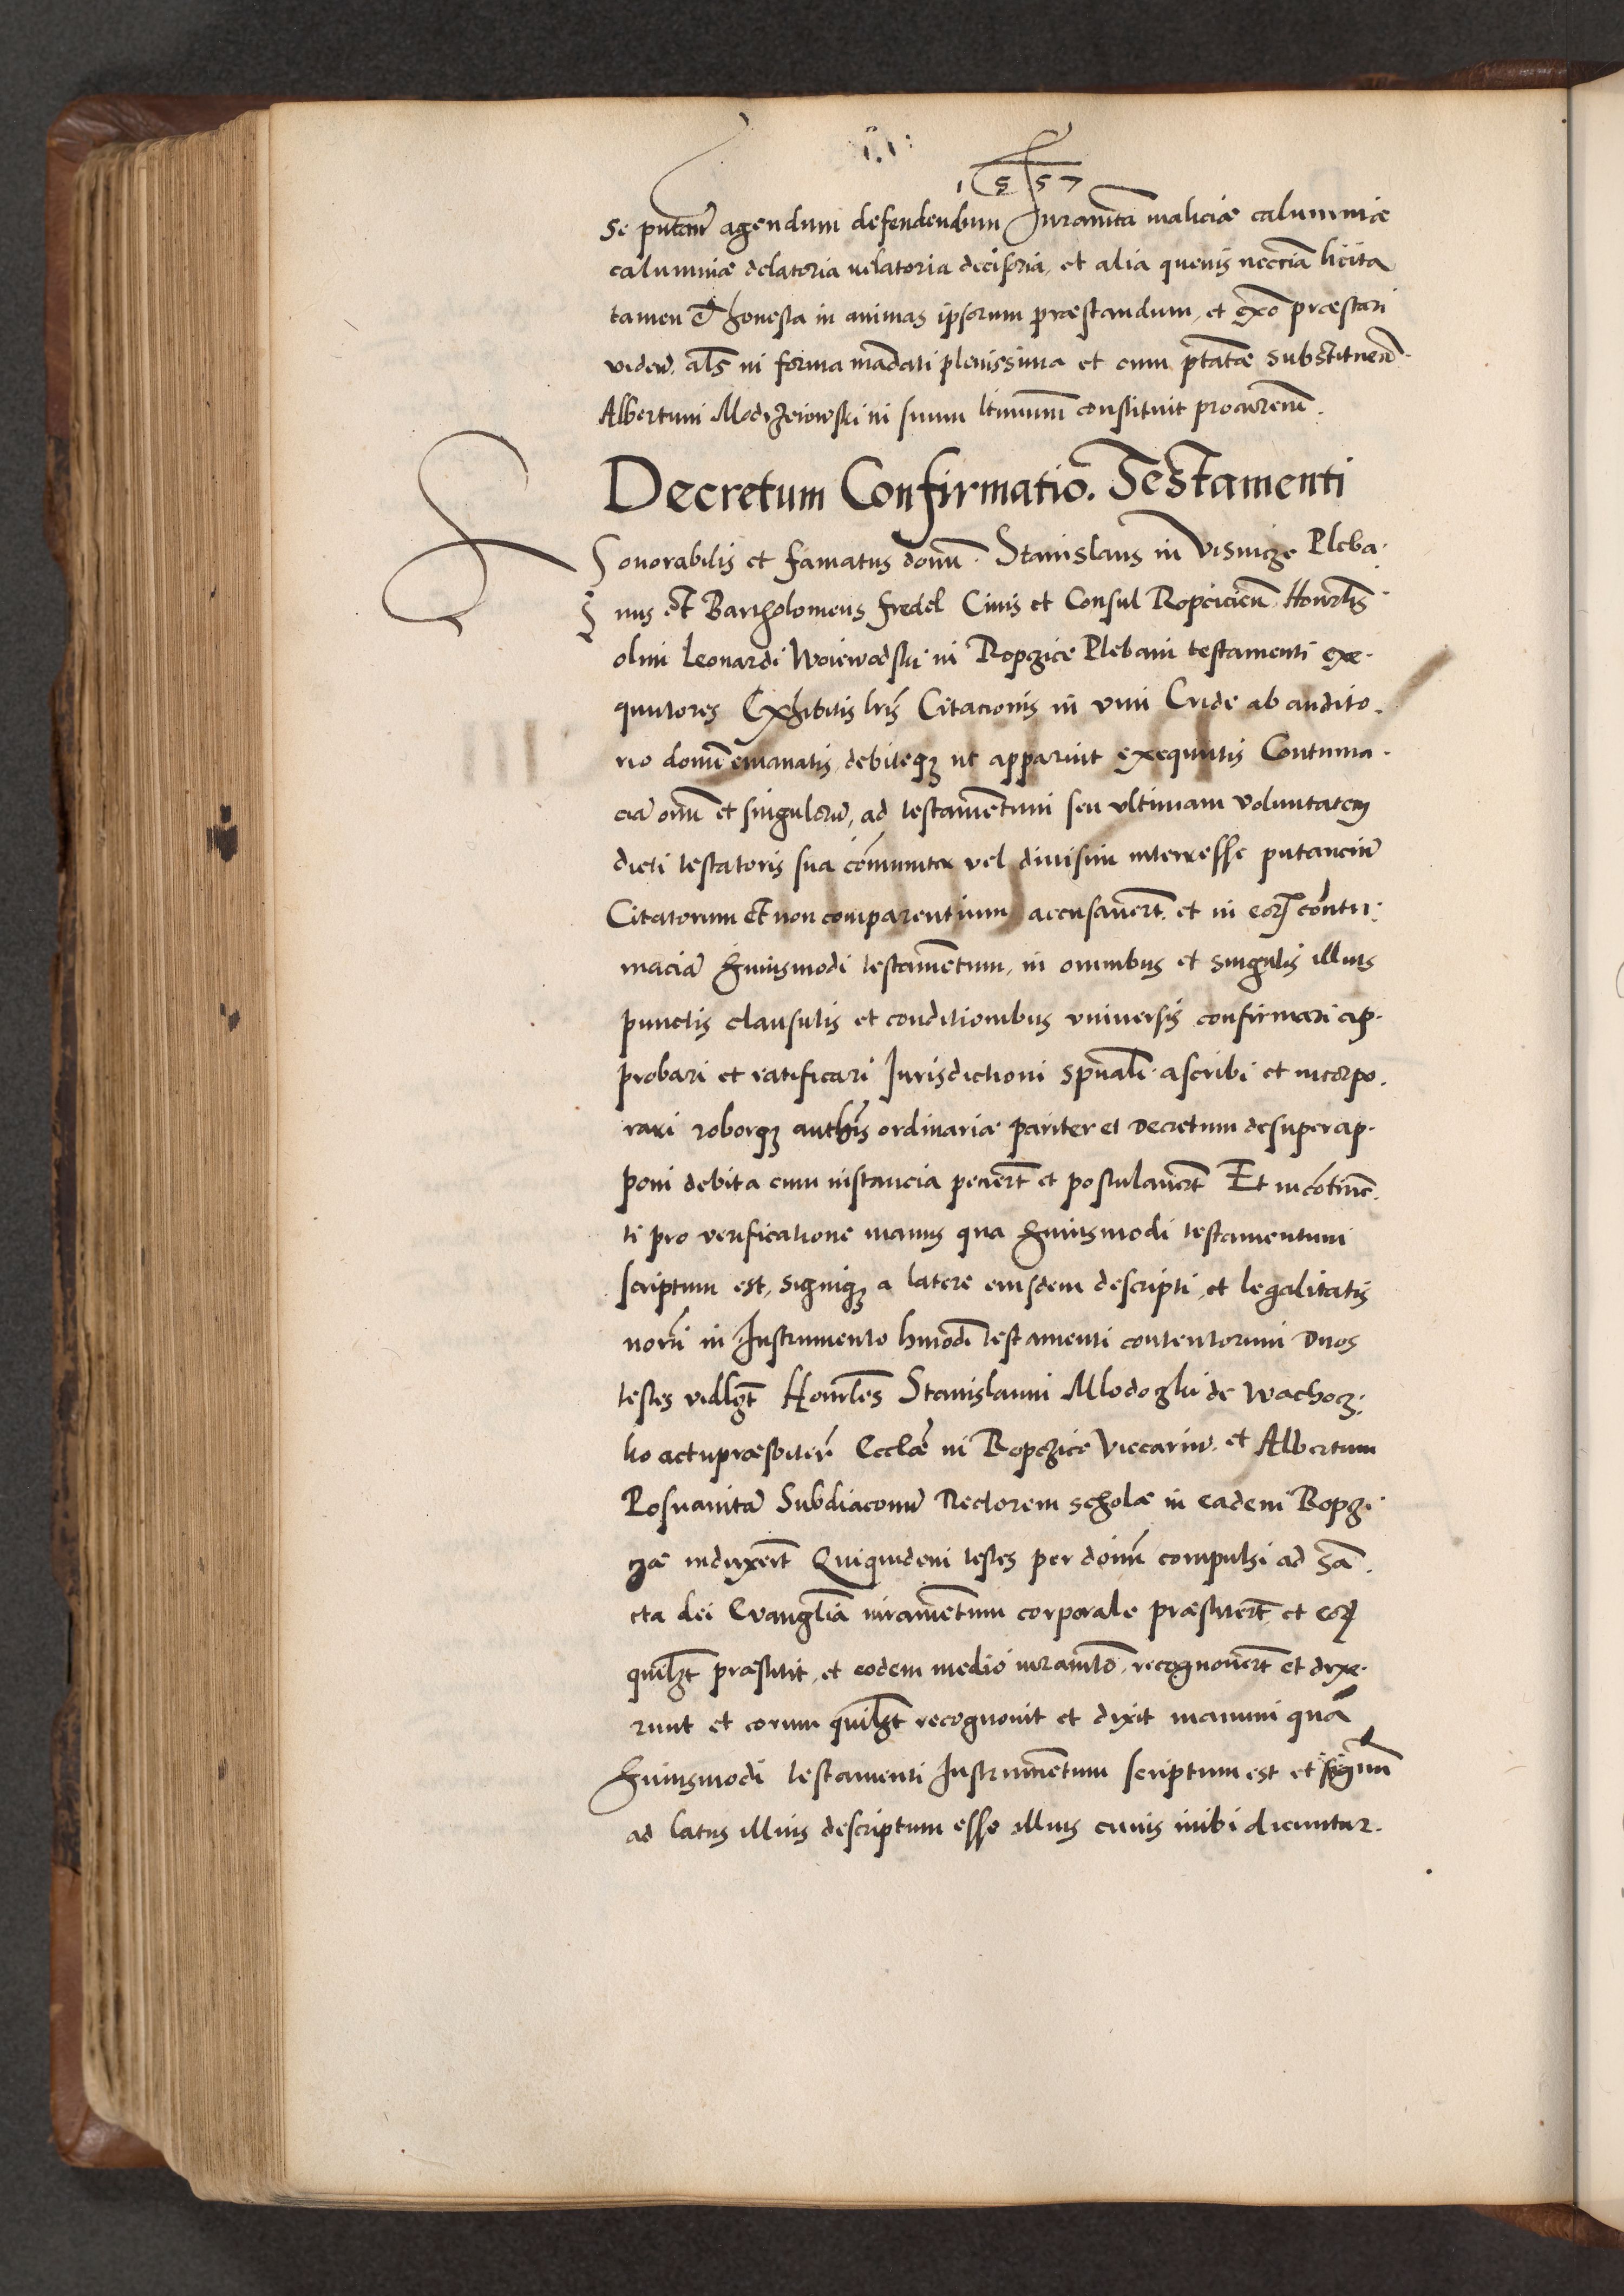 1557
se putan̄ agendum defendendum Juramēta maliciæ calumniæ
calumniæ delatoria uelatoria decisoria, et alia queuis necc̄ria licita
tamen et honesta in animas ipsorum præstandum, et præstari
viden̄. al̄s in forma mādati plenissima et cum p̄tatæ substituen̄.
Albertum Modrzeiowski in suum l̄timum constituit procurem̄.
Decretum Confirmatio. Testamenti
Honorabilis et famatus domī. Stanislaus in Visnicze Pleba.
nus et Bartholomeus Fredel Ciuis et Consul Ropcicien̄ Honorl̄is
olim Leonardi Woiewodski in Ropczice Plebani testamenti exe.
qutores Exhibitis l̄ris Citacionis in vim Cride ab audito.
rio domī emanatis, debiteqꝫ ut apparuit exequutis Contuma.
ciā om̄ et singulorū, ad testamētum seu vltimam voluntatem
dicti testatoris sua cōmuniter vel diuisim interesse putanciū
Citatorum et non comparentium accusauerūt. et in eoꝝ contu.
maciā huiusmodi testamētum, in omnibus et singulis illius
punctis clausulis et conditionibus vniuersis confirmari ap.
probari et ratificari Jurisdictioni sp̄uali ascribi et incorpo.
rari roborqꝫ auth̄is ordinariæ pariter et Decretum desuper ap.
poni debita cum instancia pecierūt et postulauerūt Et incōtinē.
ti pro verificatione manus qua huiusmodi testamentum
scriptum est, signiqꝫ a latere eiusdem descripti, et legalitatis
norū in Instrumento hmōdi testamenti contentorum Duos
testes vidl̄gt Honorl̄es Stanislaum Mlodoghi de Wachocz.
ko actu præsbiterū Eccl̄æ in Ropczice Viccariū. et Albertum
Posnanitā Subdiaconū Rectorem scholæ in eadem Ropczi
czæ induxerūt Quiquidem testes per domī compulsi ad Sā.
cta dei Euangl̄ia iuramētum corporale præstiterūt, et eoꝝ
quilꝫt præstitit, et eodem medio iuramēto, recognouerūt et dixe.
runt et eorum quilꝫt recognouit et dixit manum quā
huiusmodi testamenti Instrumētum scriptum est et signū
ad latus illius descriptum esse illius cuius inibi dicuntur.